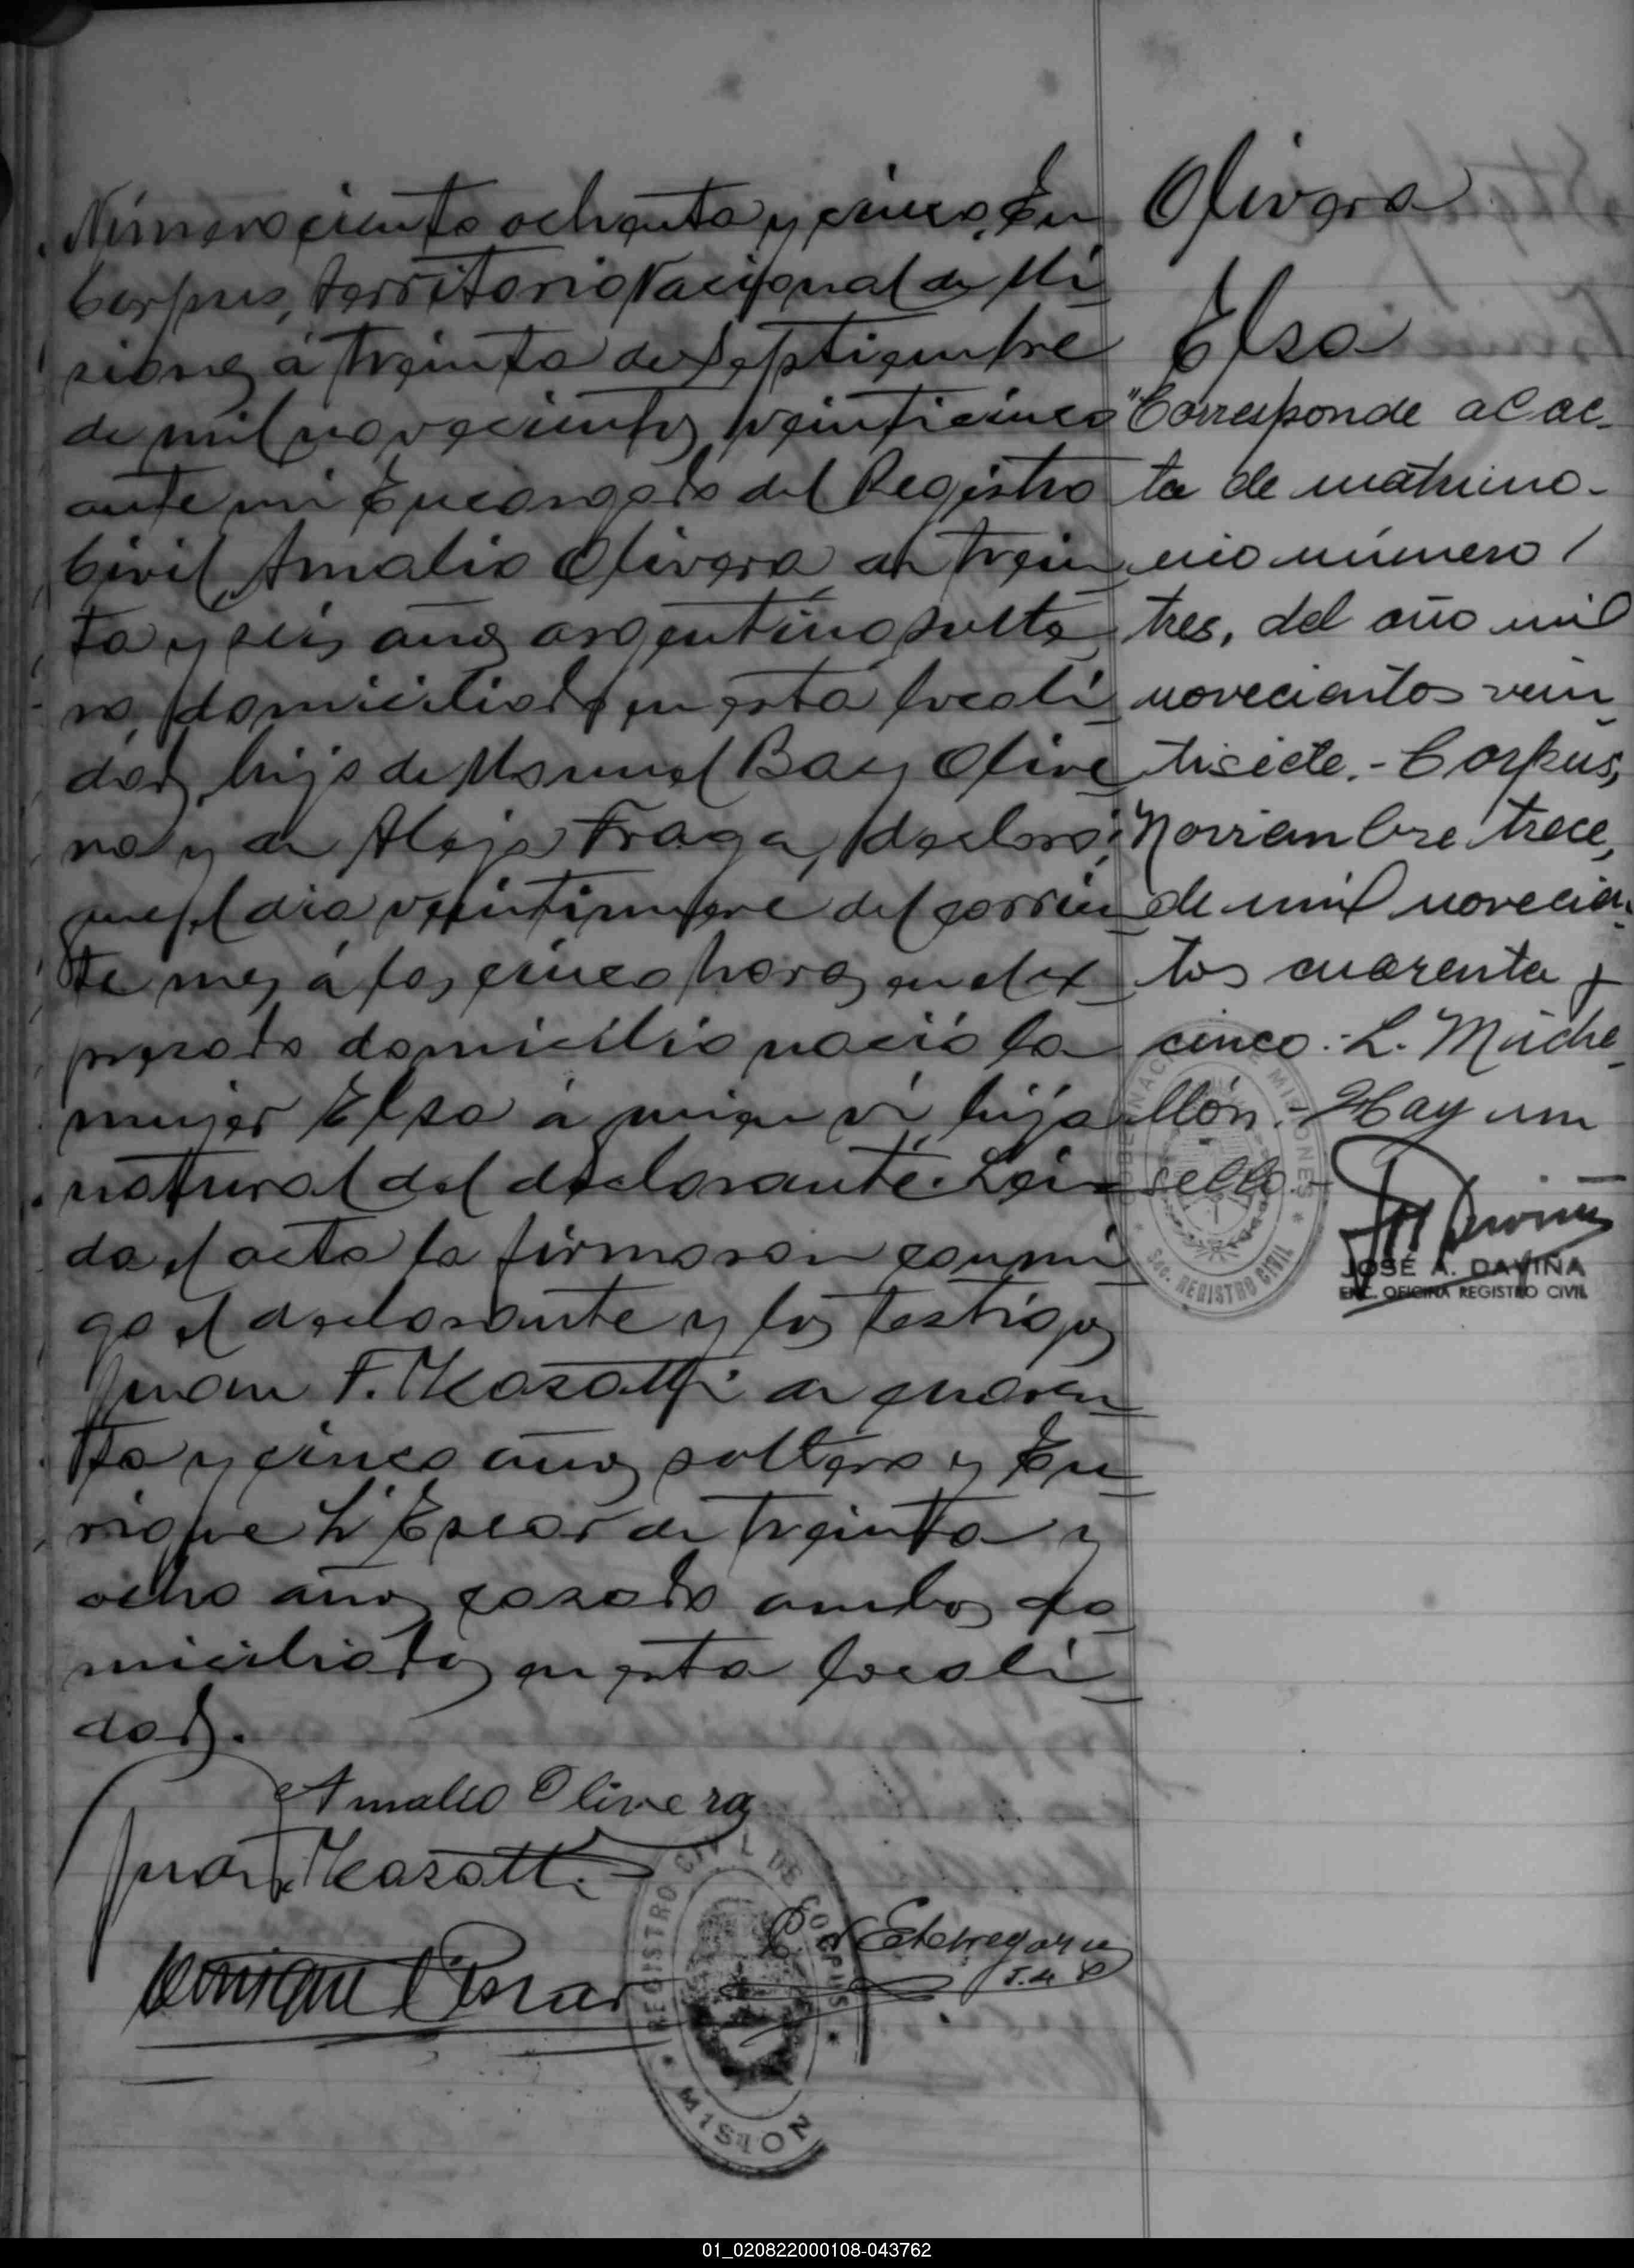 Número ciento ochenta y cinco. En
Corpus, territorio Nacional de Mi
siones á treinta de Septiembre
de mil novecientos veinticinco
ante mi Encargado del Registro
Civil, Amalio Olivera de trein
ta y seis años argentino, solte
ro, domiciliado en esta locali
dad, hijo de Manuel Olive
ra y de Fraga, declaró;
que el día veintinueve del corrien
te mes á las cinco horas en el ex
presado domicilio nació la
mujer Elsa á quien ví hija
natural del declarante. Leí
da el acta la firmaron conmi
go el declarante y los testigos
Juan F. de cuaren
ta y cinco años, soltero y En
rique L'Escar de treinta y
ocho años casado ambos do
miciliados en esta locali
dad.
Amalio Olivera
Juan F.
Enrique L'Escar
Etchegaray
J. de P
REGISTRO CIVIL DE CORPUS * MISION
Olivera
Elsa
"Corresponde al ac-
ta de matrimo-
nio número
tres, del año mil
novecientos vein
tisiete.- Corpus,
Noviembre trece,
de mil novecien
tos cuarenta y
cinco.- L.
Hay un
sello.-
GOBERNACION DE MISIONES * Sec. REGISTRO CIVIL *
JOSÉ A. DAVIÑA
ENC. OFICINA REGISTRO CIVIL
01_020822000108-043762